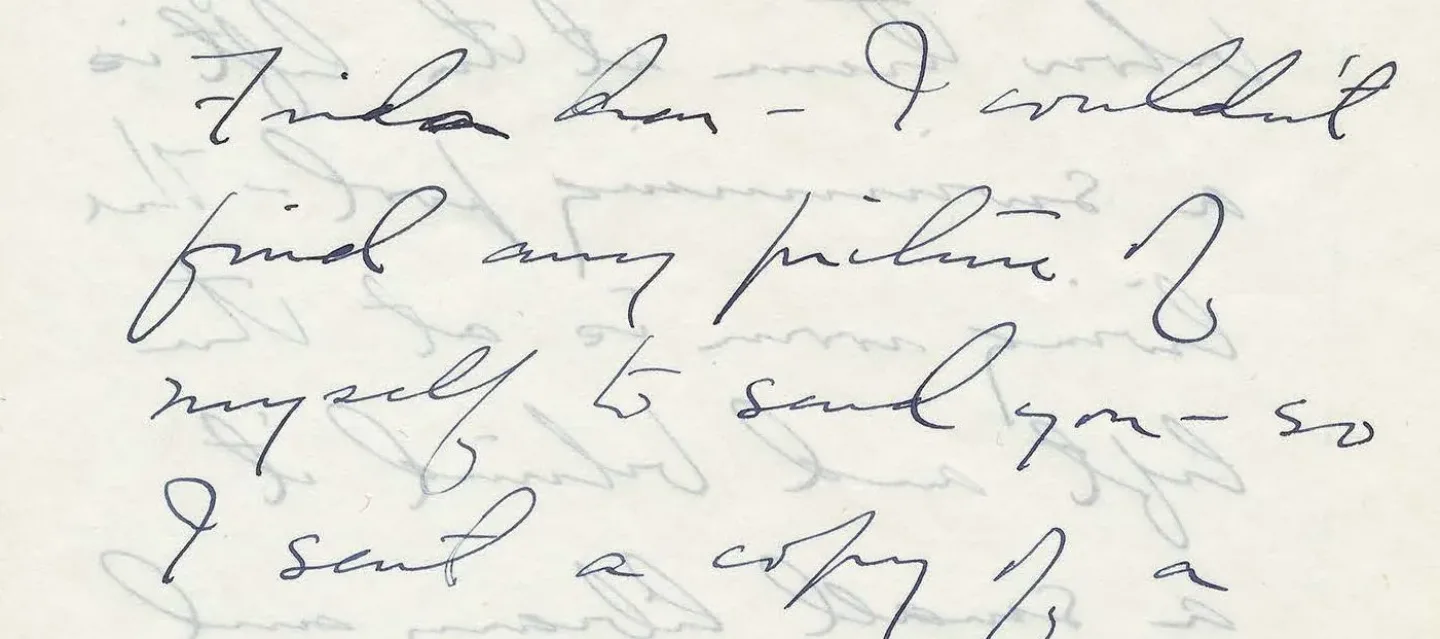 Frida dear – I couldn't
find any picture of
myself to send you – so
I sent a copy of a